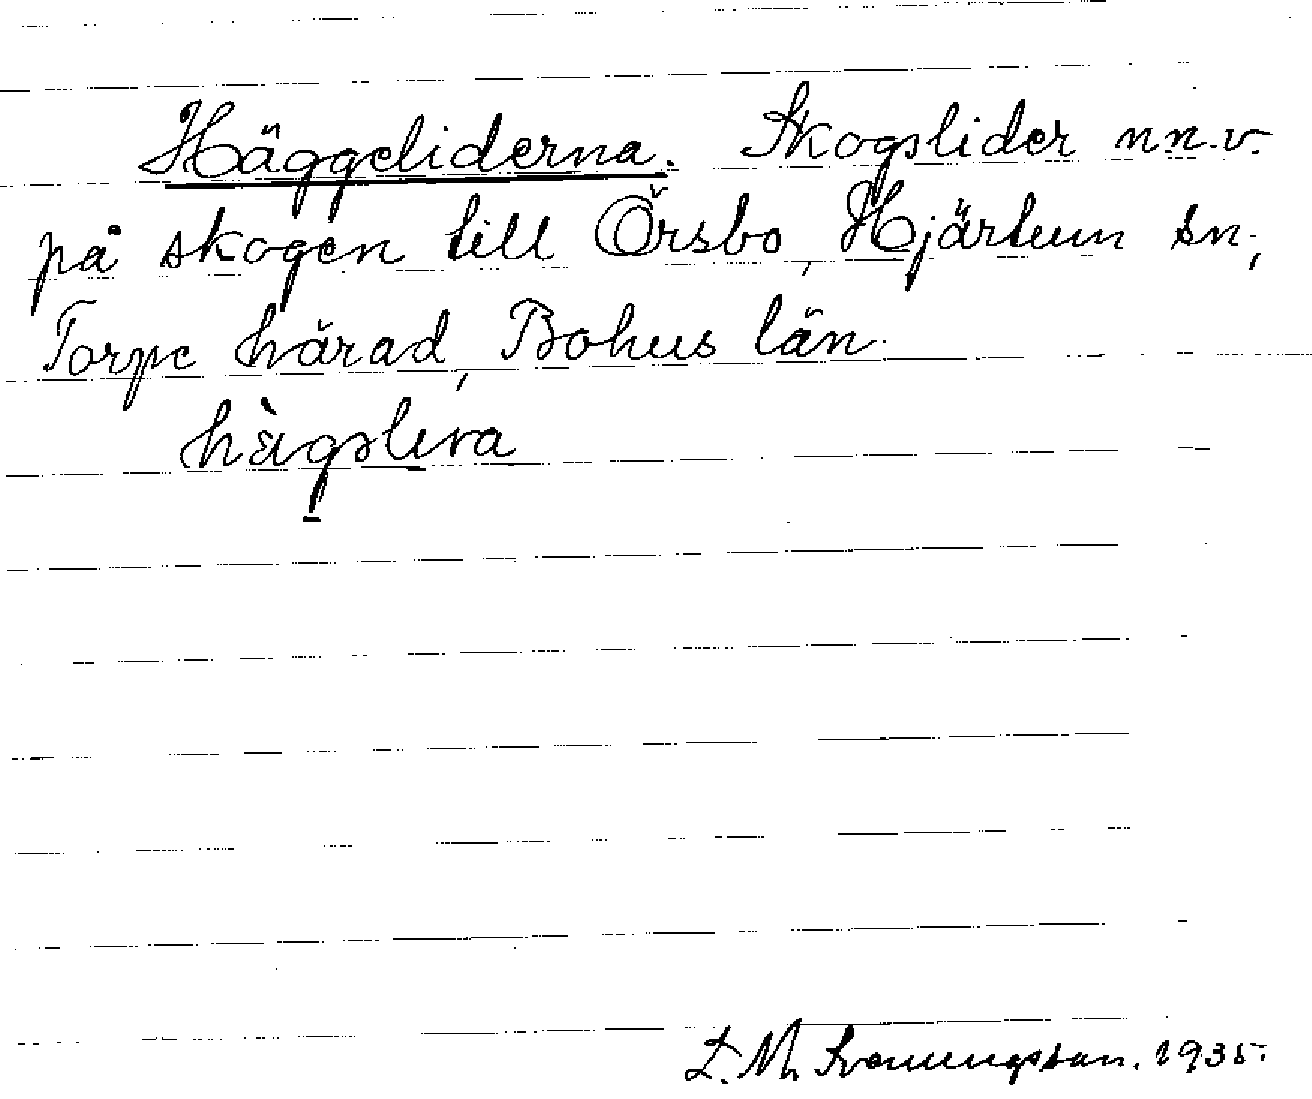 Häggeliderna. Skogslider nn.v.
på skogen till Örsbo, Hjärtum sn.,
Torpe härad, Bohus län.
hàgslera
L. M. Svenungsson. 1935.